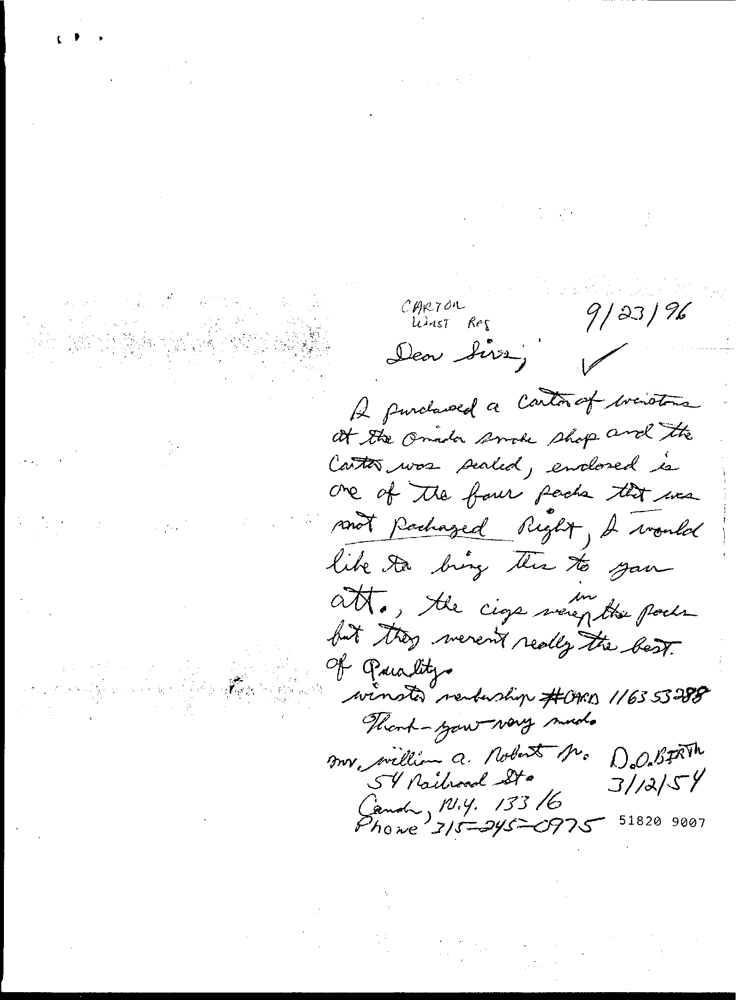 CARTON
WINST Reg
9/23/96
Dear Sirs;
I purchased a Carton of winstons
at the Onida smoke shop and the
Carton was sealed, enclosed is
one of the four packs that was
not packaged Right, I would
like to bring this to your
att., the cigs were in the packs
but they weren't really the best.
of Quality.
winston membership #CARD 116353288
Thank-you-very much.
mr. william a. Robert Jr. D.O.BIRTH
54 Railroad St. 3/12/54
Camden, N.Y. 13316
Phone 315-245-0975 51820 9007